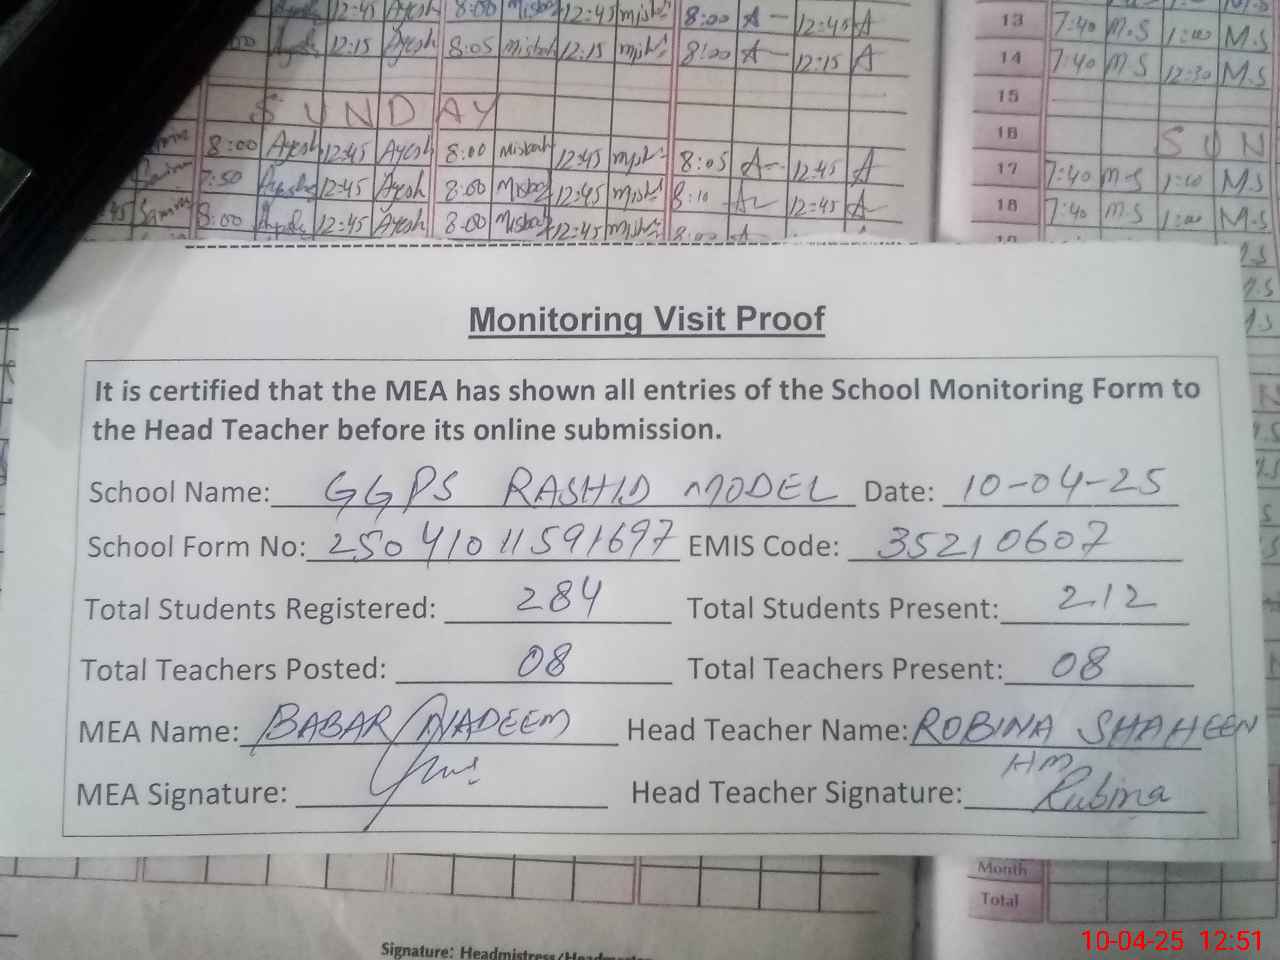 12:45 Ayesh 8:00 Misbah 12:45 misb: 8:00 A 12:45 A
12:15 Ayesh 8:05 Misbah 12:15 misb: 8:00 A 12:15 A
SUNDAY
8:00 Ayesh 12:45 Ayesh 8:00 Misbah 12:45 misb: 8:05 A 12:45 A
7:50 Ayesha 12:45 Ayesh 8:00 Misbah 12:45 Misb: 8:10 A 12:45 A
8:00 12:45 Ayesh 8:00 Misbah 12:45 Misb: 8:00 A
13 7:40 M.S 1:00 M.S
14 7:40 M.S 12:30 M.S
15
16 SUN
17 7:40 M.S 1:00 M.S
18 7:40 M.S 1:00 M.S
Monitoring Visit Proof
It is certified that the MEA has shown all entries of the School Monitoring Form to
the Head Teacher before its online submission.
School Name: GGPS RASHID MODEL Date: 10-04-25
School Form No: 25041011591697 EMIS Code: 35210607
Total Students Registered: 284 Total Students Present: 212
Total Teachers Posted: 08 Total Teachers Present: 08
MEA Name: BABAR NADEEM Head Teacher Name: ROBINA SHAHEEN
HM
MEA Signature: Head Teacher Signature: Rubina
Month
Total
Signature: Headmistress/
10-04-25 12:51